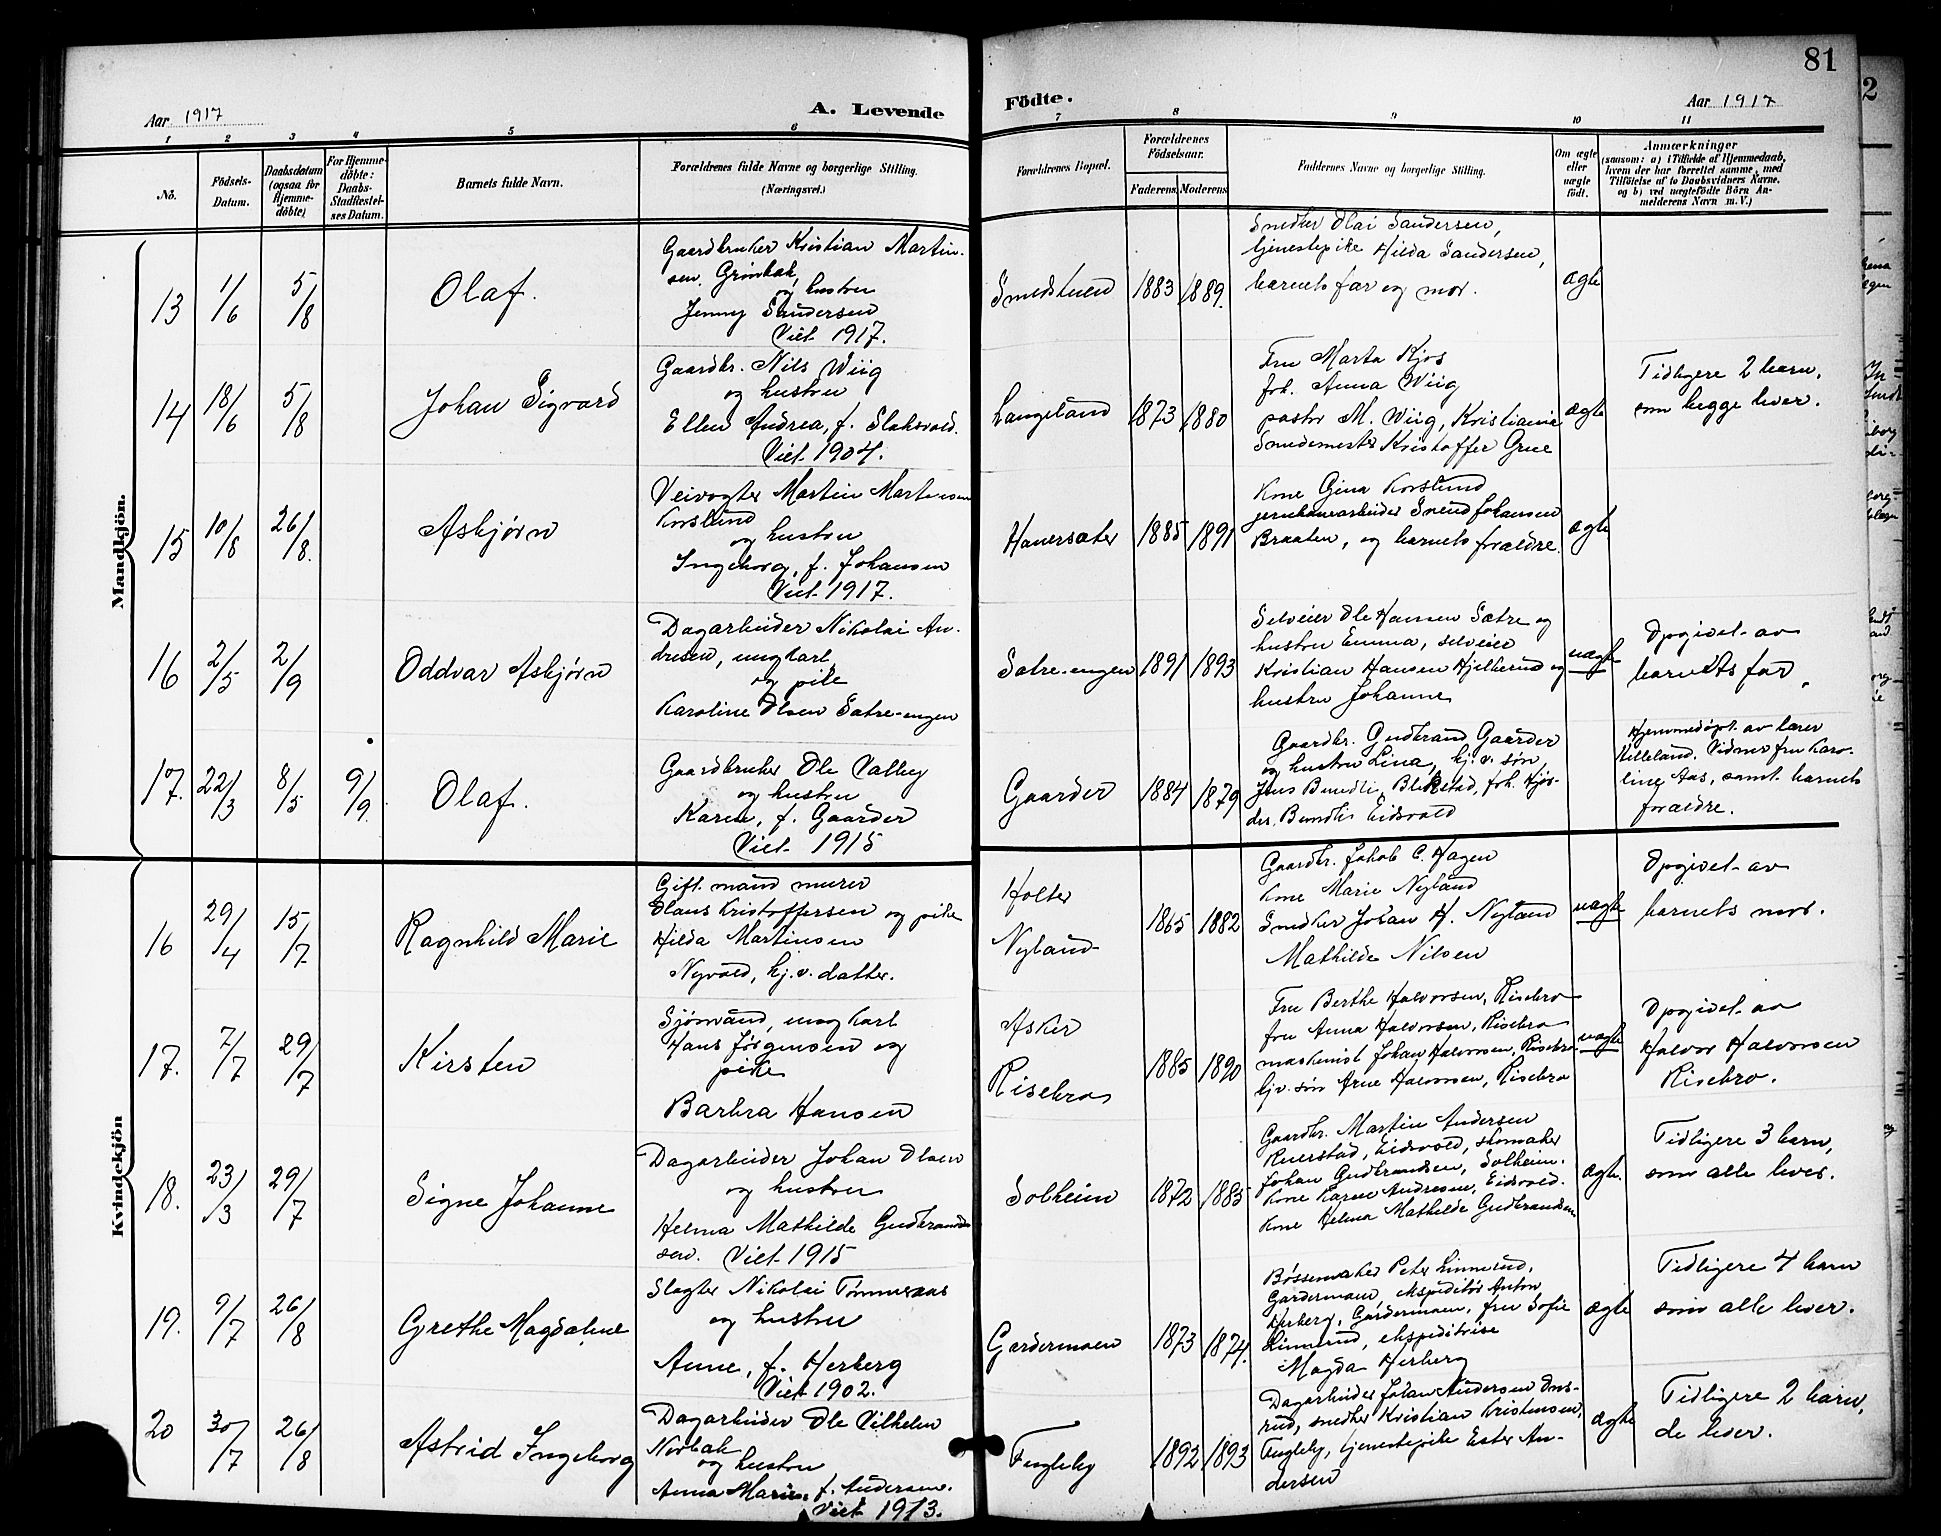 81
2
Aar 1917
A. Levende
Födte.
Aar 1917
1 2 3 4 5 6 7 8 9 10 11
No.
Födsels-
Datum.
Daabsdatum
(ogsaa for
Hjemme-
döbte)
For Hjemme-
döbte:
Daabs-
Stadfæstel-
ses Datum.
Barnets fulde Navn.
Forældrenes fulde Navne og borgerlige Stilling.
(Næringsvei.)
Forældrenes Bopæl.
Forældrenes
Födselsaar.
Faderens Moderens
Faddernes Navne og borgerlige Stilling.
Om ægte
eller
uægte
födt.
Anmærkninger
(saasom: a) i Tilfælde af Hjemmedaab,
hvem der har forrettet samme, med
Tilföielse af to Daabsvidners Navne,
og b) ved uægtefödte Börn An-
melderens Navn m. V.)
Mandkjön.
13 1/6 5/8
Olaf.
Gaardbruker Kristian Martin-
sen, Grinbak,
og hustru
Jenny Sandersen
Viet 1917.
Smedstuen 1883 1889.
Snedker Olai Sandersen,
tjenestepike Hilda Sandersen,
barnets far og mor.
ægte
14 18/6 5/8
Johan Sigvard
Gaardbr. Nils Wiig
og hustru
Ellen Andrea, f. Slaksvold.
Viet 1904.
Langeland 1873 1880
Fru Marta Kjos
frk. Anna Wiig
pastor M. Wiig, Kristiania
Smedemester Kristoffer Grue
ægte
Tidligere 2 barn,
som begge lever.
15 10/8 26/8.
Asbjørn
Veivogter Martin Martinsen
Korslund
og hustru
Ingeborg, f. Johansen
Viet 1917.
Hauersæter 1885 1891
Kone Gina Korslund
jernbanearbeider Svend Johansen
Braaten, og barnets forældre.
ægte
16 2/5 2/9
Oddvar Asbjørn
Dagarbeider Nikolai An-
dresen, ungkarl,
og pike
Karoline Olsen Sætre-engen
Sætre-engen 1891 1893
Selveier Ole Hansen Sætre og
hustru Emma, selveier
Kristian Hansen Hjelkerud og
hustru Johanne
uægte
Opgivet av
barnets far.
17. 22/3 8/5 9/9.
Olaf.
Gaardbruker Ole Valby
og hustru
Karen, f. Gaarder
Viet 1915
Gaarder 1884 1879
Gaardbr. Gudbrand Gaarder
og hustru Lina, hj.v. søn
Jens Bundli, Blekstad, frk. Hjør-
dis Bundli Eidsvold
Hjemmedøpt av lærer
Killeland. Vidner fru Karo-
line Aas, samt barnets
forældre.
Kvindekjön
16 29/4 15/7
Ragnhild Marie
Gift mand murer
Hans Kristoffersen og pike
Hilda Martinsen
Nyvold, hj.v. datter.
Holter
Nyland 1865 1882
Gaardbr. Jakob C. Hagen
Kone Marie Nyland
Snedker Johan H. Nyland
Mathilde Nilsen
uægte
Opgivet av
barnets mor.
17. 7/7 29/7
Kirsten
Sjømand, ungkarl
Hans Jørgensen og
pike
Barbra Hansen
Asker
Risebro 1885 1890
Fru Berthe Halvorsen, Risebro
fru Anna Halvorsen, Risebro
maskinist Johan Halvorsen, Risebro
hjv. søn Arne Halvorsen, Risebro
uægte
Opgivet av
Halvor Halvorsen
Risebro.
18. 23/3 29/7
Signe Johanne
Dagarbeider Johan Olsen
og hustru
Helma Mathilde Gudbrand-
sen. Viet 1915
Solheim 1872 1885
Gaardbr. Martin Andersen
Ruerstad, Eidsvold, skomaker
Johan Gudbrandsen, Solheim.
Kone Karen Andresen, Eidsvold.
Kone Helma Mathilde Gudbrandsen
ægte.
Tidligere 3 barn,
som alle lever.
19. 9/7 26/8
Grethe Magdalene
Slagter Nikolai Tømmeraas
og hustru
Anne, f. Herberg
Viet 1902.
Gardermoen 1873 1874.
Bøssemaker Peter Linnerud,
Gardermoen, ekspeditør Anton
Herberg, Gardermoen, fru Sofie
Linnerud, ekspeditrise
Magda Herberg
ægte
Tidligere 4 barn
som alle lever.
20 30/7 26/8
Astrid Ingeborg
Dagarbeider Ole Vilhelm
Norbak
og hustru
Anna Marie, f. Andersen.
Viet 1913.
Fugleby 1892 1893
Dagarbeider Johan Andersen Ons-
rud, snedker Kristian Kristensen,
Fugleby, tjenestepike Ester An-
dersen
ægte
Tidligere 2 barn,
de lever.